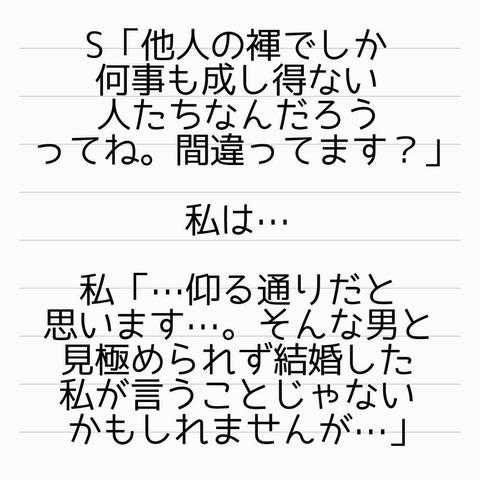 S「他人の褌でしか
何事も成し得ない
人たちなんだろう
ってね。間違ってます？」
私は…
私「…仰る通りだと
思います…。そんな男と
見極められず結婚した
私が言うことじゃない
かもしれませんが…」